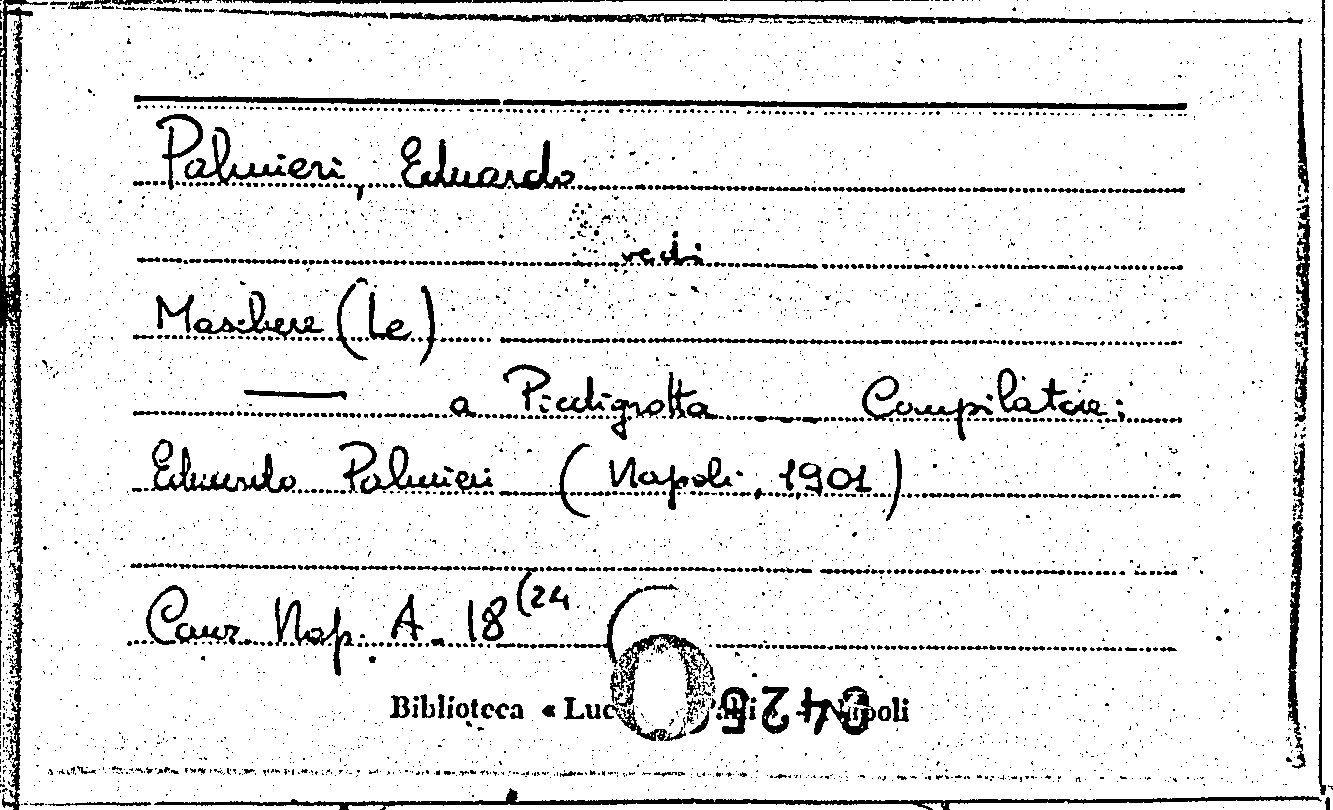 Palmieri, Eduardo
vedi
Maschere (Le)
— a Piedigrotta — Compilatore:
Eduardo Palmieri (Napoli, 1901)
Canz. Nap. A. 18 (24
Biblioteca « Luc Napoli